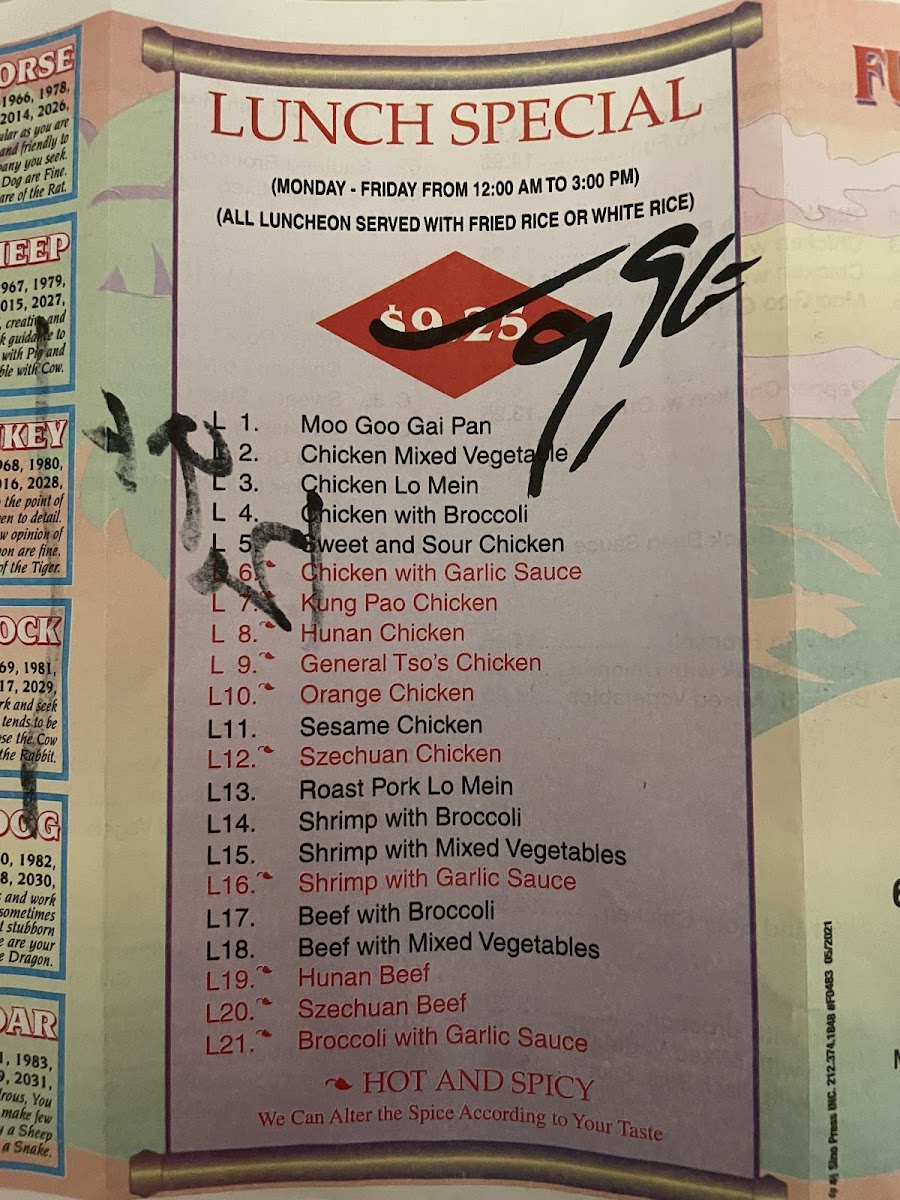 ORSE
1966, 1978,
2014, 2026,
ular as you are
and friendly to
pany you seek.
Dog are Fine.
are of the Rat.
HEEP
967, 1979,
015, 2027,
, creative and
k guidance to
with Pig and
ble with Cow.
KEY
968, 1980,
016, 2028,
the point of
en to detail.
w opinion of
on are fine.
of the Tiger.
OCK
69, 1981,
17, 2029,
rk and seek
tends to be
se the Cow
the Rabbit.
DOG
0, 1982,
8, 2030,
and work
sometimes
t stubborn
e are your
e Dragon.
OAR
1, 1983,
9, 2031,
rous, You
make few
y a Sheep
a Snake.
LUNCH SPECIAL
(MONDAY - FRIDAY FROM 12:00 AM TO 3:00 PM)
(ALL LUNCHEON SERVED WITH FRIED RICE OR WHITE RICE)
$9.25
9,95
L 1. Moo Goo Gai Pan
L 2. Chicken Mixed Vegetable
L 3. Chicken Lo Mein
L 4. Chicken with Broccoli
L 5. Sweet and Sour Chicken
L 6. Chicken with Garlic Sauce
L 7. Kung Pao Chicken
L 8. Hunan Chicken
L 9. General Tso's Chicken
L10. Orange Chicken
L11. Sesame Chicken
L12. Szechuan Chicken
L13. Roast Pork Lo Mein
L14. Shrimp with Broccoli
L15. Shrimp with Mixed Vegetables
L16. Shrimp with Garlic Sauce
L17. Beef with Broccoli
L18. Beef with Mixed Vegetables
L19. Hunan Beef
L20. Szechuan Beef
L21. Broccoli with Garlic Sauce
HOT AND SPICY
We Can Alter the Spice According to Your Taste
FU
Sino Press INC. 212.374.1848 #F0483 05/2021